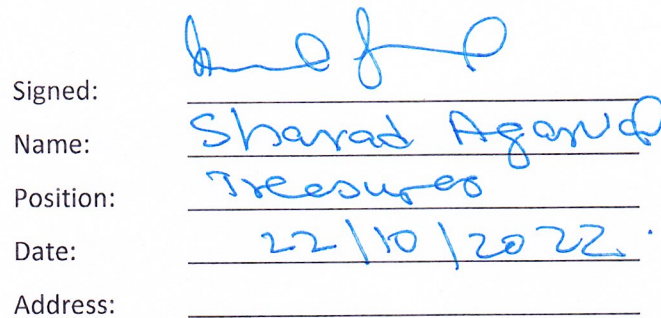 Signed:
Name: Sharad Agarwal
Position: Treasurer
Date: 22/10/2022.
Address: